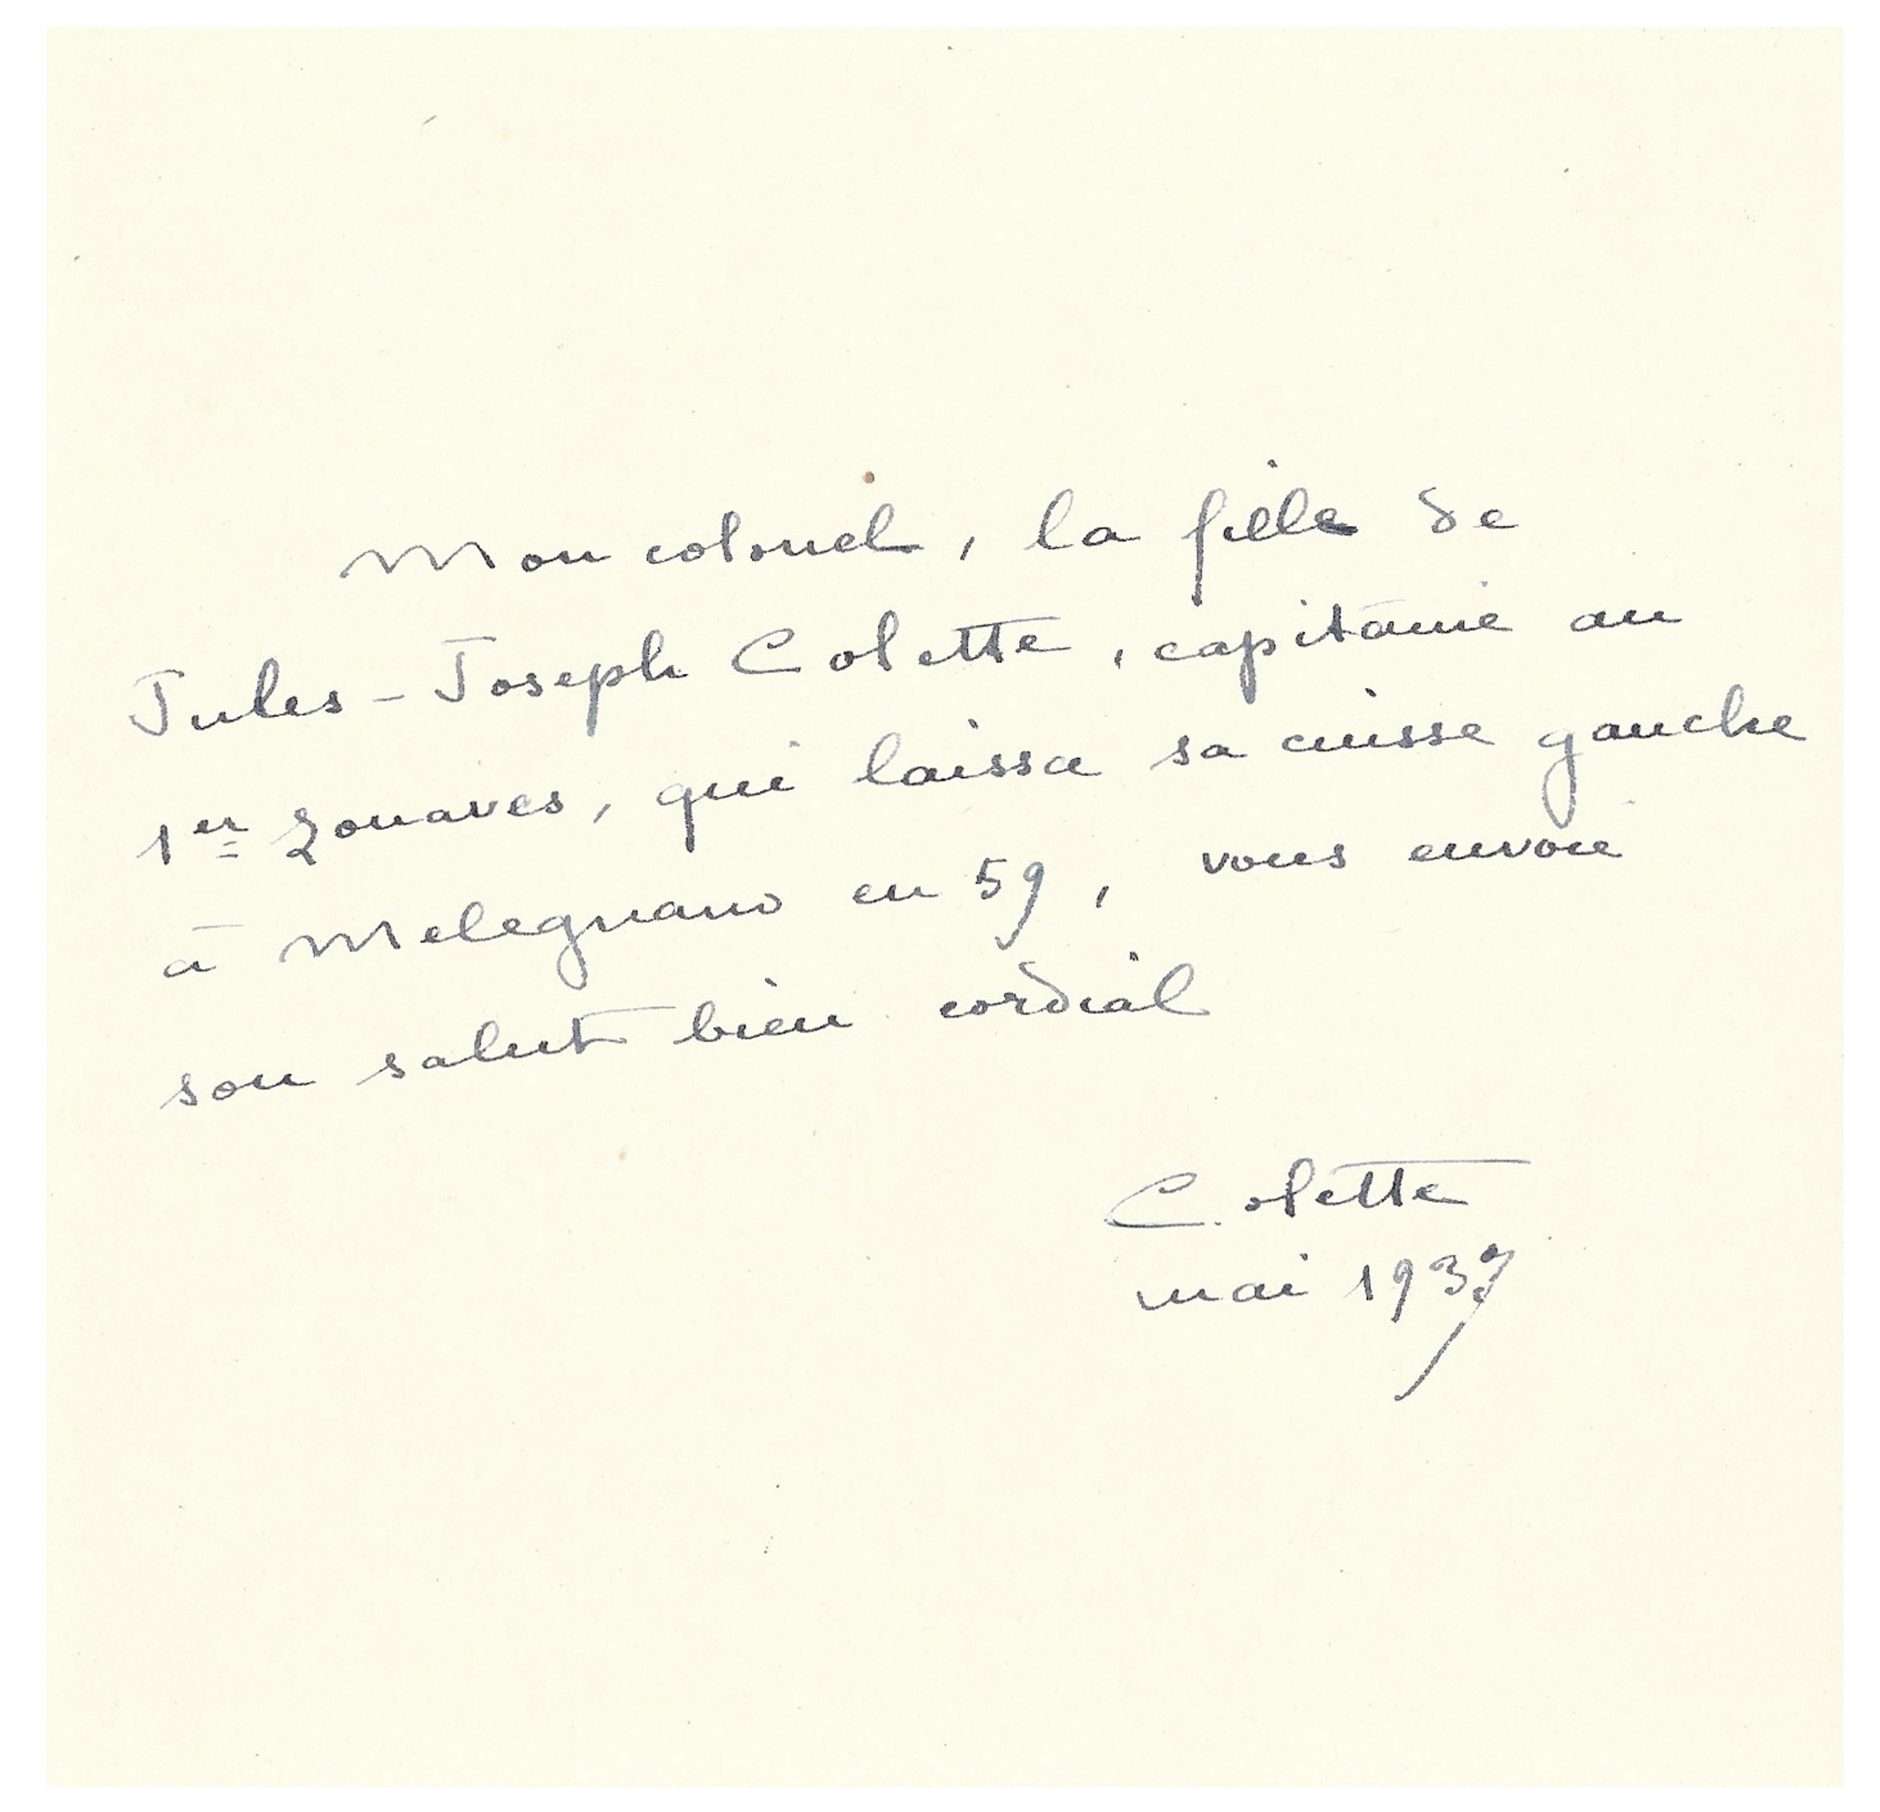 Mon colonel, la fille de
Jules-Joseph Colette, capitaine au
1er zouaves, qui laissa sa cuisse gauche
à Melegnano en 59, vous envoie
son salut bien cordial
Colette
mai 1939